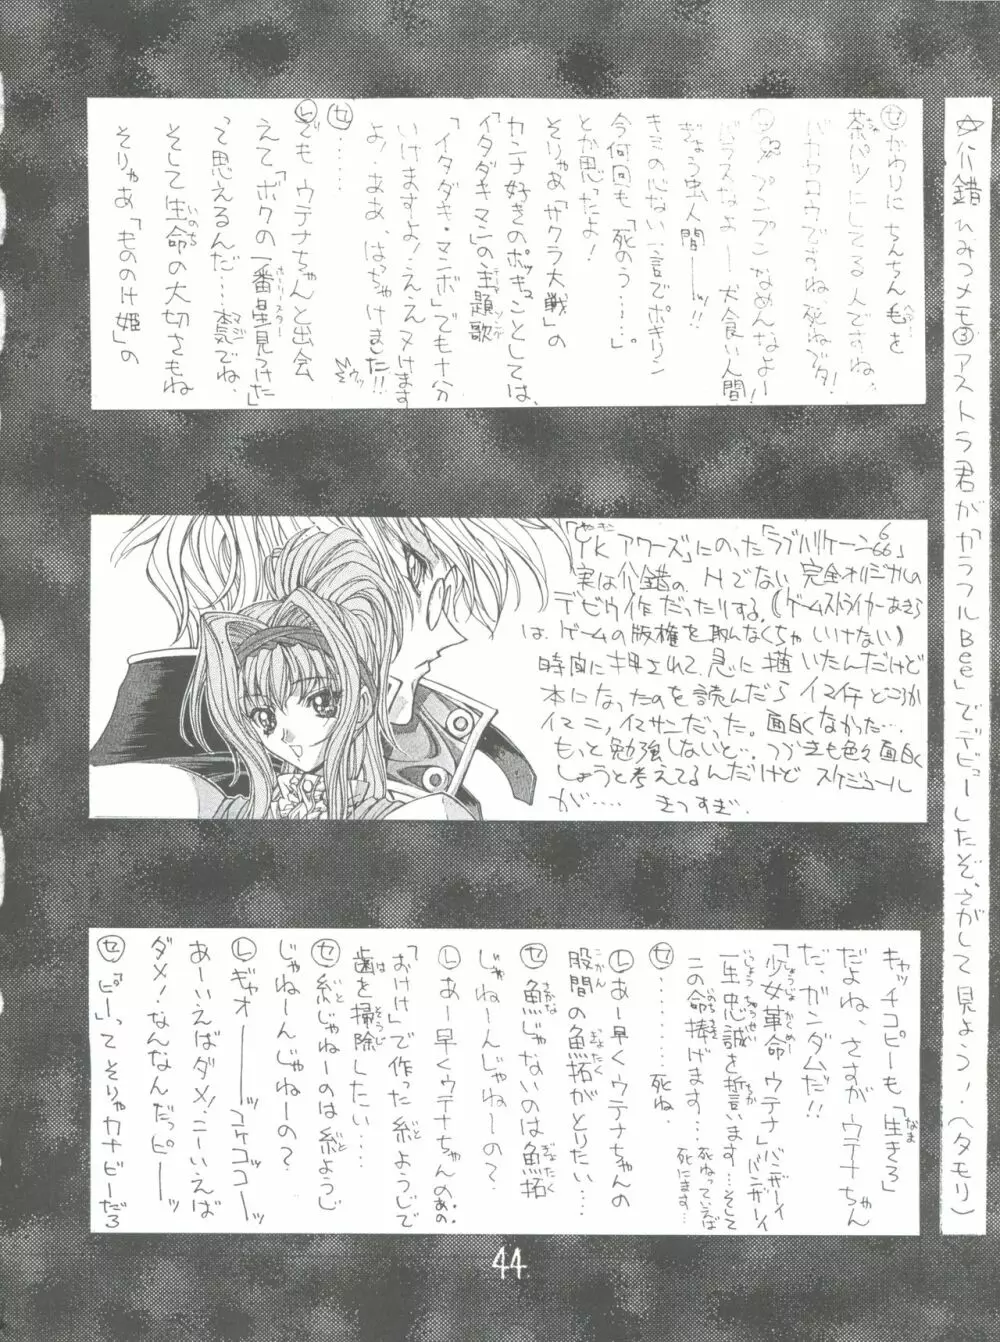 ☆介錯ひみつメモ③アストラ君が「カラフルBee」でデビューしたぞ、さがして見よう!(ヘタモリ)
セがわりに ちんちん毛を
茶パツにしてる人ですね。
バカヤロウですね。死ねブタ!
セ プンプン なめんなよー!
バラスなよー 犬食い人間!
ぎょう虫人間ーッ!!
キミの心ない一言でポキリン
今何回も「死のう……。」
とか思ったよ!
そりゃあ「サクラ大戦」の
カンナ好きのポッキーことしては、
「イタダキマン」の主題歌
「イタダキ・マンボ」でも十分
いけますよ!ええ ヌけます
よ!ああ、はっちゃけました!!
セ……
レでも ウテナちゃんと出会
えて「ボクの一番星見つけた」
って思えるんだ……本気でね、
そして生命の大切さもね
そりゃあ「もののけ姫」の
「YKアワーズ」にのった「ラブハリケーン666」
実は介錯の、Hでない 完全オリジナルの
デビウ作だったりする。(ゲームストライカーあきら
は、ゲームの版権を取んなくちゃいけない)
時間に押されて、急に描いたんだけど
本になったのを読んだら イマイチどころか
イマニ,イマサンだった。面白くなかった…
もっと勉強しないと… つづきも色々面白く
しようと考えてるんだけど スケジュール
が…… きつすぎ.
キャッチコピーも「生きろ」
だよね、さすが ウテナちゃん
だ、ガンダムだ!!
「少女革命 ウテナ」バンザーイ バンザーイ
一生忠誠を誓います…そして
この命捧げます…死ねっていえば 死にます…
セ………死ね
レあー早くウテナちゃんの
股間の魚拓がとりたい…
セ魚じゃないのは魚拓
じゃねーんじゃねーの?
レあー早くウテナちゃんのあの
「おけけ」で作った 糸ようじで
歯を掃除したい……
セ糸じゃねーのは 糸ようじ
じゃねーんじゃねーの?
レギャオーーッコケコッコーーッ
あーいえばダメ!こーいえば
ダメ!なんなんだっピーーッ
セ「ピー」って そりゃカナビーだろ
44